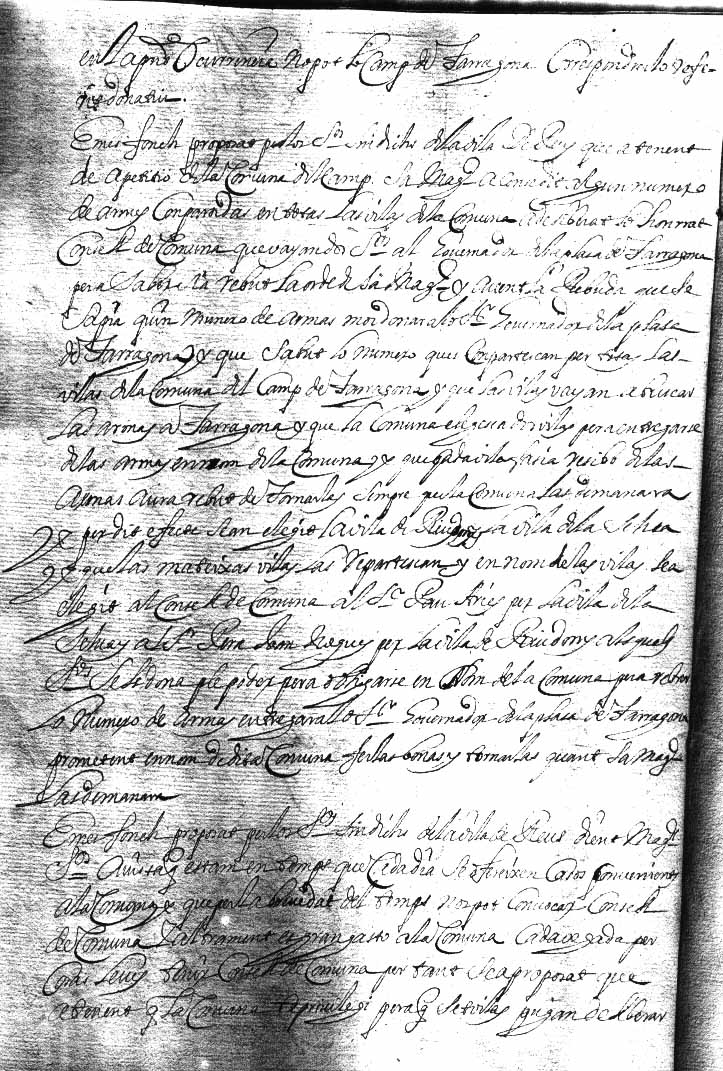 en la pnt Ocurrencia No pot lo Camp de Tarragona Correspondre lo ofe-
rir donatiu.
E mes fonch proposat per los Srs Sindichs de la vila de Reus que atenent
de a petitio de la Comuna del Camp Sa Magt a concedit algun numero
de armes Comparadas en totas las vilas de la Comuna a deliberat lo honrat
Consell de Comuna que vayan dos Srs al Governador de la plasa de Tarragona
pera Saber si a rebut la orde de Sa Magt y avent la Rebuda que se
Sapia quin Numero de Armas mos donara lo Sr Governador de la plasa
de Tarragona y que Sabut lo Numero ques Conpartescan per totas las
vilas de la Comuna del Camp de Tarragona y que las vilas vayan a buscar
las armas a Tarragona y que la Comuna elegesca dos vilas pera entregarse
de las armas en nom de la Comuna y que cada vila fasia resibo de las
Armas aura rebut de Tornarlas Sempre que la Comuna las demanara
y per dit efecte Sean elegit la vila de Riudoms y la vila de la Selva
y que las mateixas vilas las Repartescan y en nom de las vilas Sea
elegit al Consell de Comuna al Sr Pau Aries per la vila de la
Selva y al Sr Pere Joan per la vila de Riudoms als quals
Srs Se ls dona ple poder pera obligarse en Nom de la Comuna pera rebrer
lo Numero de Armas entregara lo Sr Governador de la plasa de Tarragona
prometent en nom de dita Comuna ferlas bonas y tornarlas quant Sa Magt
las demanara
E mes fonch proposat per los Srs Sindichs de la vila de Reus dient Magt
Srs estam en temps que Cada dia Se ofereixen Casos convenients
a la Comuna y que per la brevedat del temps nos pot Convocar Consell
de Comuna y altrament es gran gasto a la Comuna Cada vegada per
Tenir Consell de Comuna per tant Sea proposat que
atenent q la Comuna te privilegi pera q Set vilas pugan deliberar